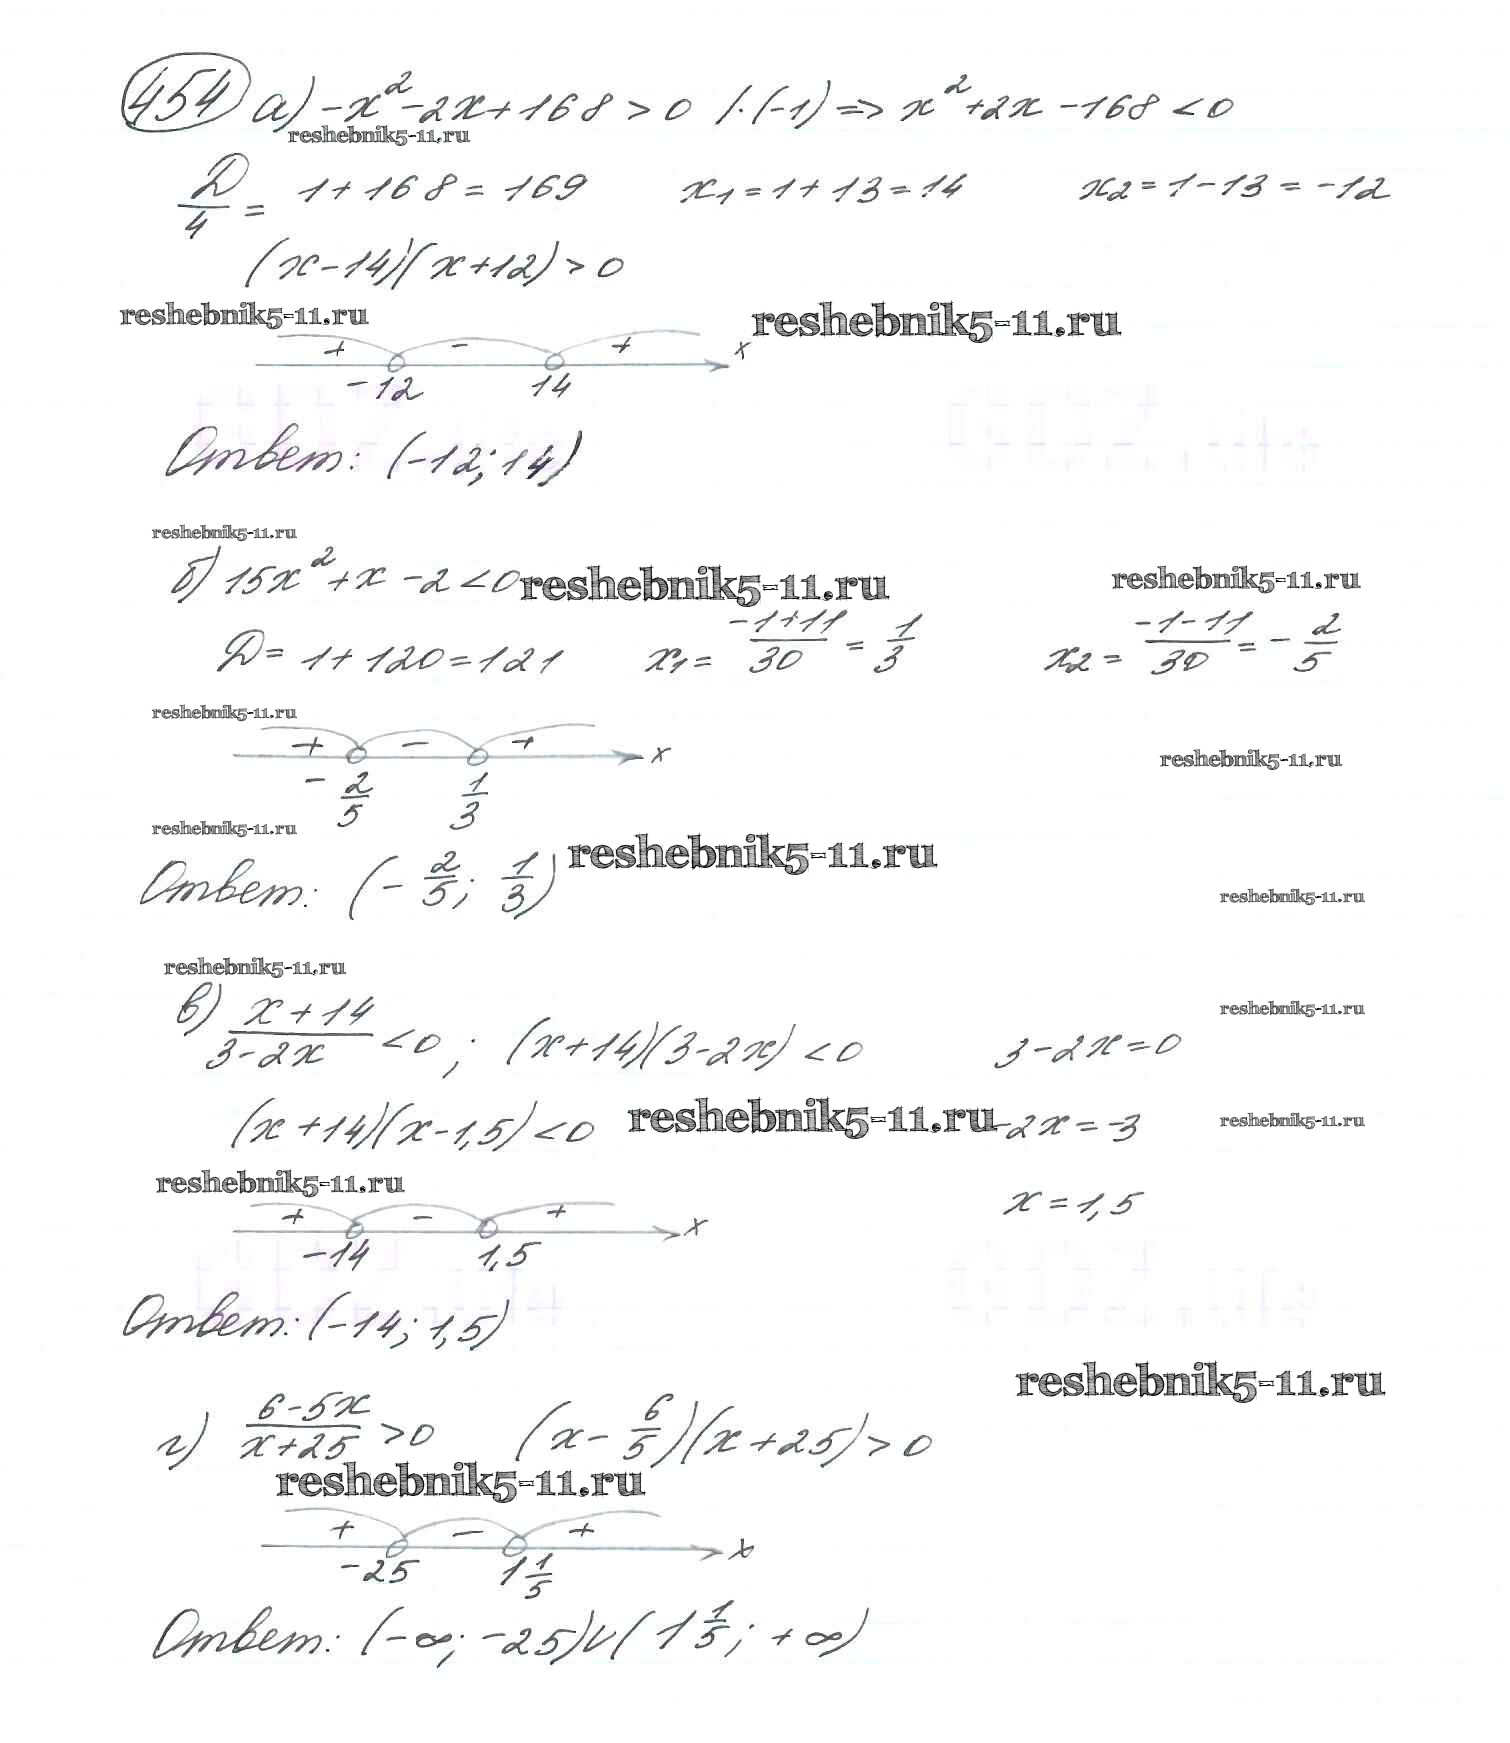 454 а) -x² - 2x + 168 > 0 /·(-1) => x² + 2x - 168 < 0
reshebnik5-11.ru
D/4 = 1 + 168 = 169 x₁ = 1 + 13 = 14 x₂ = 1 - 13 = -12
(x - 14)(x + 12) > 0
reshebnik5-11.ru reshebnik5-11.ru
+ - + x
-12 14
Ответ: (-12; 14)
reshebnik5-11.ru
б) 15x² + x - 2 < 0 reshebnik5-11.ru reshebnik5-11.ru
D = 1 + 120 = 121 x₁ = (-1+11)/30 = 1/3 x₂ = (-1-11)/30 = -2/5
reshebnik5-11.ru
+ - + x reshebnik5-11.ru
-2/5 1/3
reshebnik5-11.ru reshebnik5-11.ru
Ответ: (-2/5; 1/3) reshebnik5-11.ru
reshebnik5-11.ru
в) (x + 14)/(3 - 2x) < 0; (x + 14)(3 - 2x) < 0 3 - 2x = 0 reshebnik5-11.ru
(x + 14)(x - 1,5) < 0 reshebnik5-11.ru -2x = -3 reshebnik5-11.ru
reshebnik5-11.ru x = 1,5
+ - + x
-14 1,5
Ответ: (-14; 1,5)
reshebnik5-11.ru
г) (6 - 5x)/(x + 25) > 0 (x - 6/5)(x + 25) > 0
reshebnik5-11.ru
+ - + x
-25 1 1/5
Ответ: (-∞; -25)∪(1 1/5; +∞)